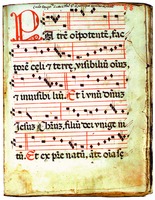 Patrē oīpotentē, fac
torē celi & terre, visibiliū oīuȝ
& inuisibi liū. Et ī unū dn̄uȝ
Jesuȝ Chr̄uȝ, filiū dei unige ni
tū. Et ex pr̄e natū, añte oīa se